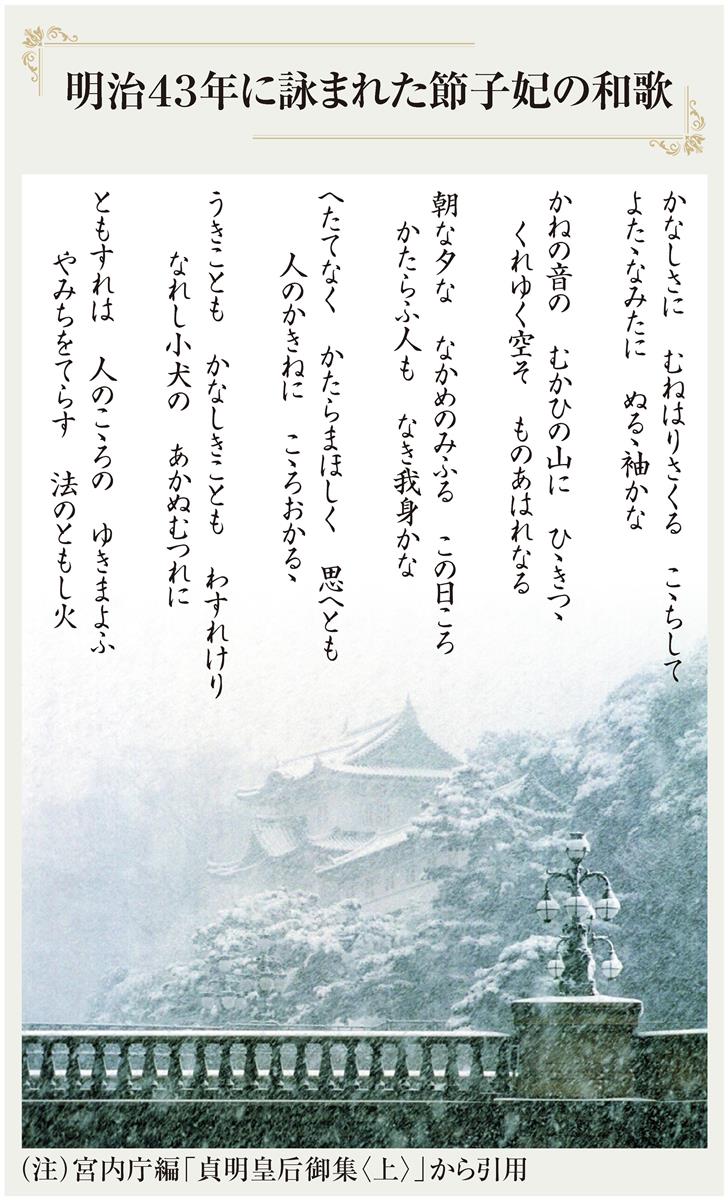 明治43年に詠まれた節子妃の和歌
かなしさに　むねはりさくる　こゝちして
よたゝなみたに　ぬるゝ袖かな
かねの音の　むかひの山に　ひゝきつゝ
くれゆく空そ　ものあはれなる
朝な夕な　なかめのみふる　この日ころ
かたらふ人も　なき我身かな
へたてなく　かたらまほしく　思へとも
人のかきねに　こゝろおかるゝ
うきことも　かなしきことも　わすれけり
なれし小犬の　あかぬむつれに
ともすれは　人のこゝろの　ゆきまよふ
やみちをてらす　法のともし火
(注)宮内庁編「貞明皇后御集〈上〉」から引用